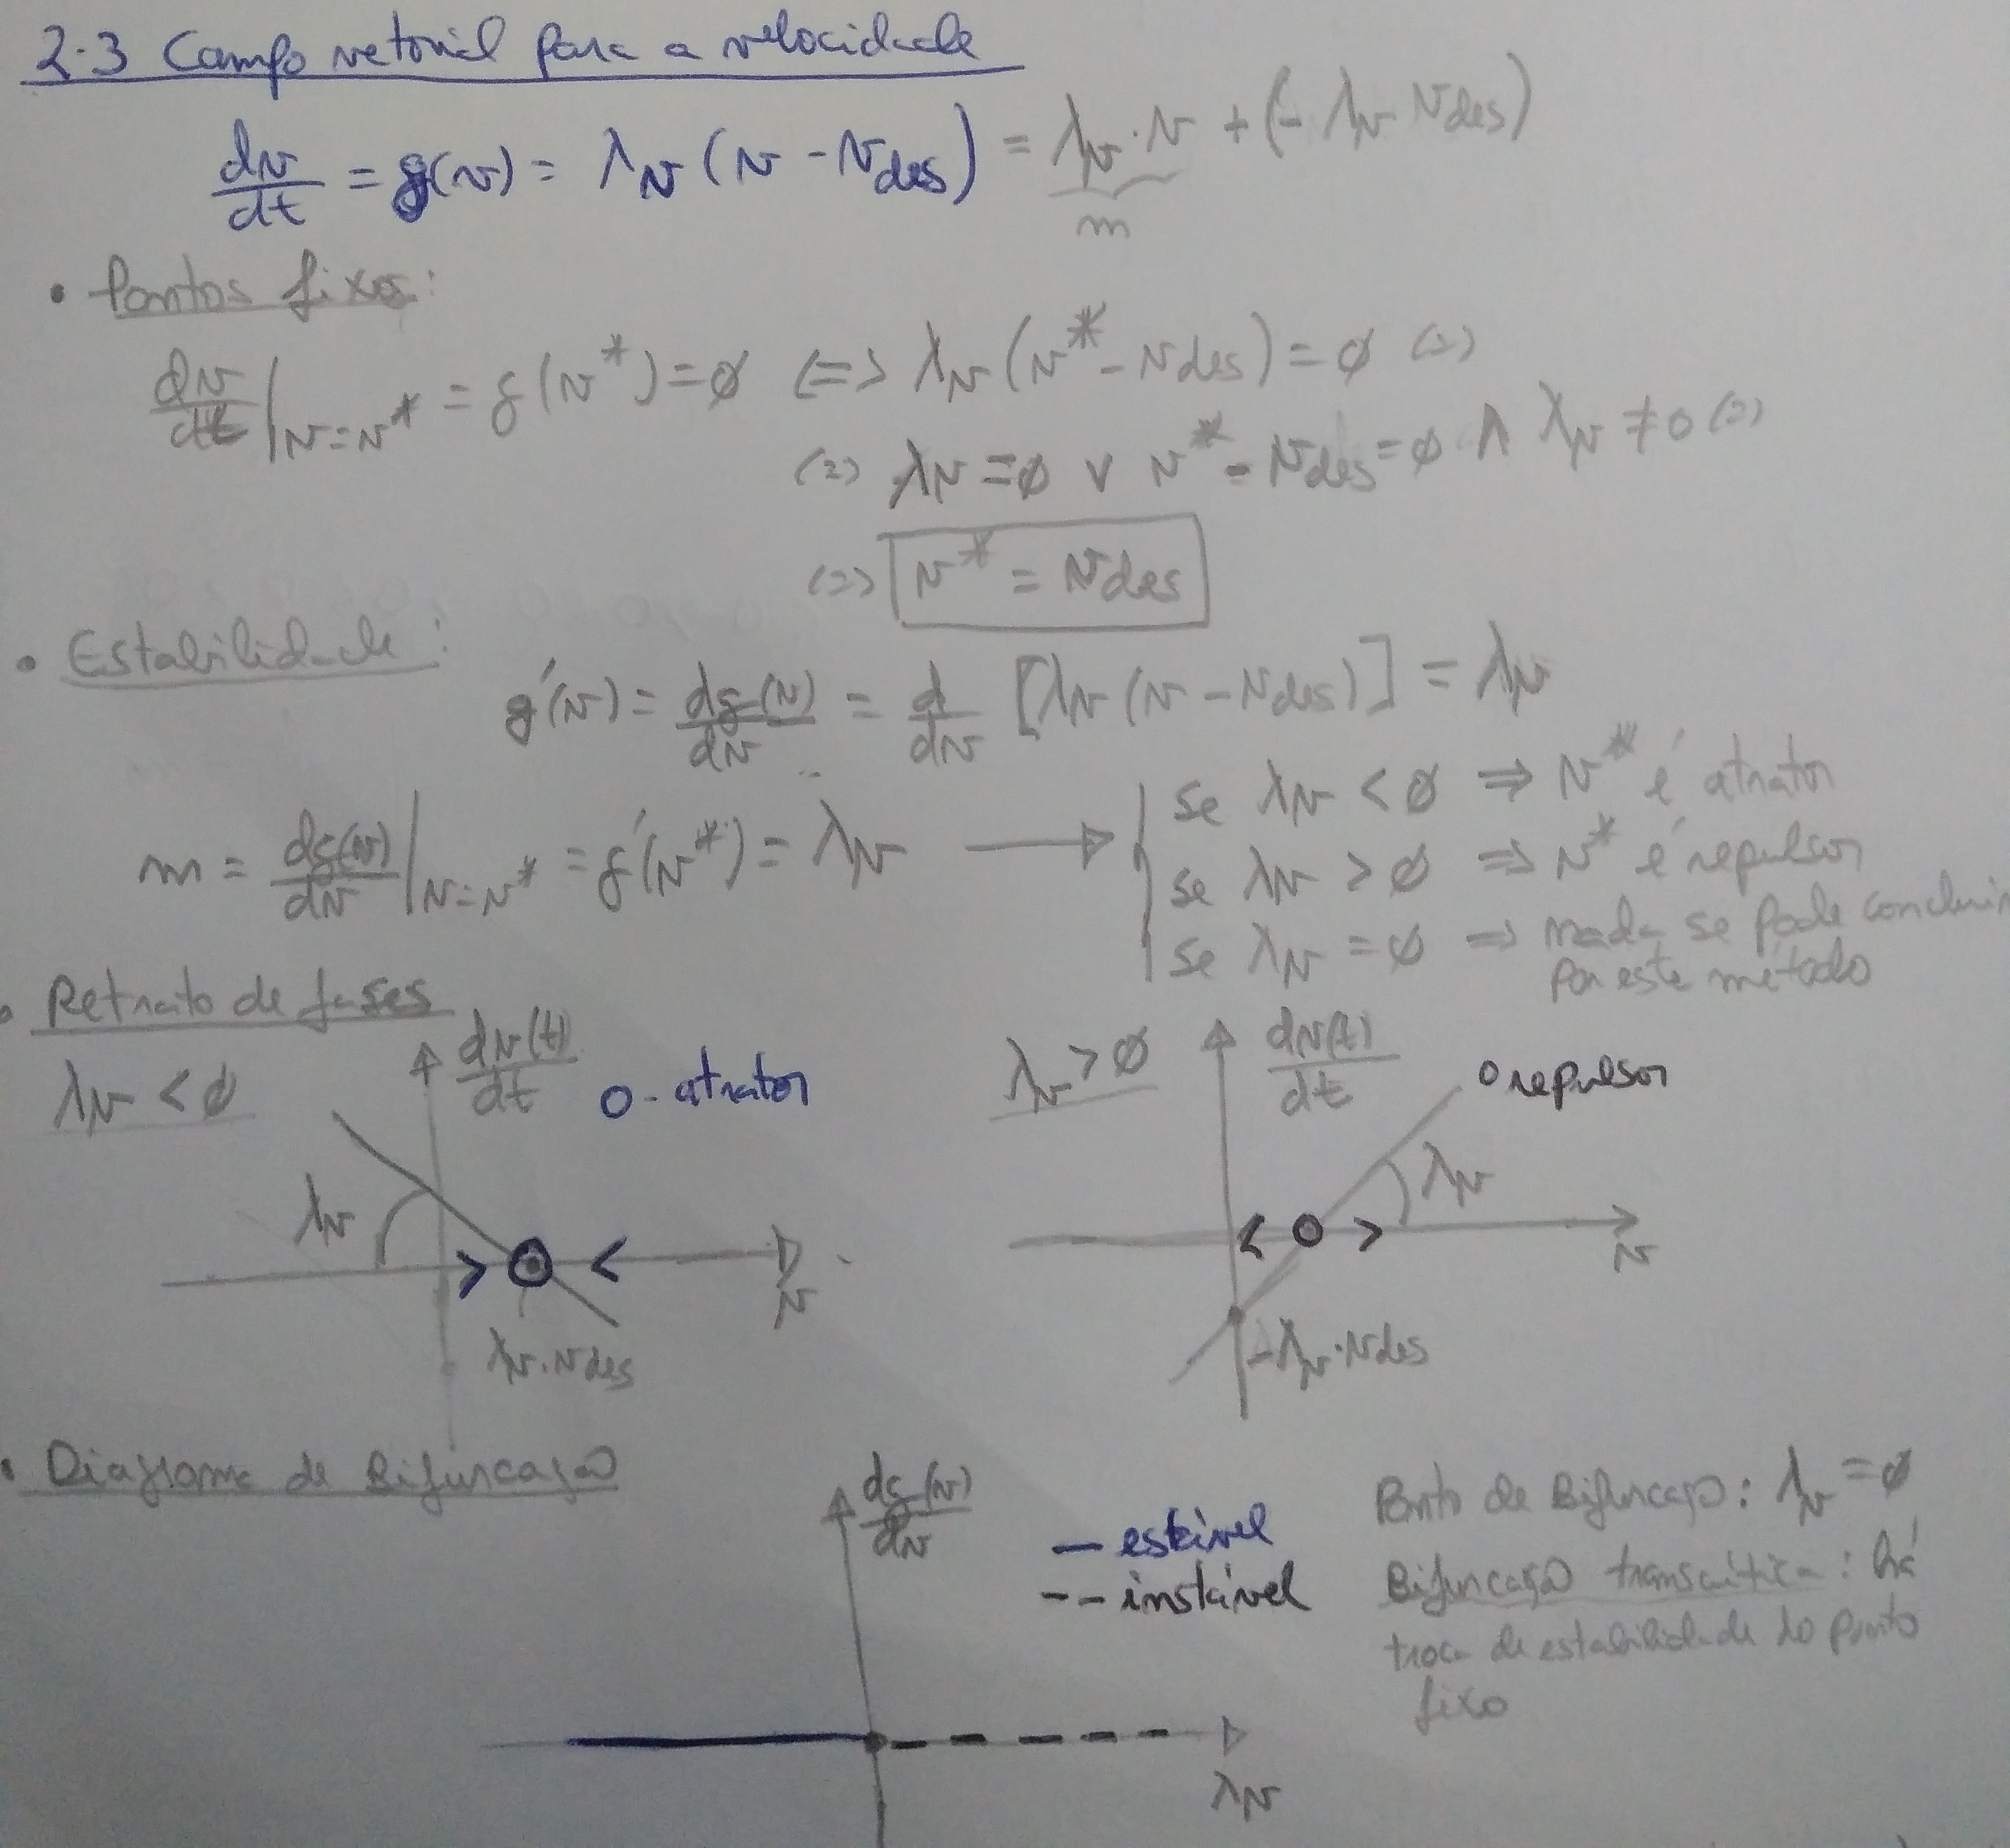 2.3 Campo vetorial para a velocidade
dv/dt = g(v) = λv (v - vdes) = λv·v + (- λv vdes)
m
• Pontos fixos:
dv/dt |v=v* = g(v*) = ø <=> λv (v* - vdes) = ø (=)
(=) λv = ø ∨ v* - vdes = ø ∧ λv ≠ 0 (=)
(=) v* = vdes
• Estabilidade:
g'(v) = dg(v)/dv = d/dv [λv (v - vdes)] = λv
m = dg(v)/dv |v=v* = g'(v*) = λv →
se λv < ø => v* é atrator
se λv > ø => v* é repulsor
se λv = ø => nada se pode concluir
por este método
• Retrato de fases
λv < ø
dv(t)/dt
o - atrator
λv
> <
v
λv·vdes
λv > ø
dv(t)/dt
o repulsor
λv
< >
v
-λv·vdes
• Diagrama de Bifurcação
dg(v)/dv
— estável
-- instável
λv
Ponto de Bifurcação: λv = ø
Bifurcação transcrítica: há
troca de estabilidade do ponto
fixo